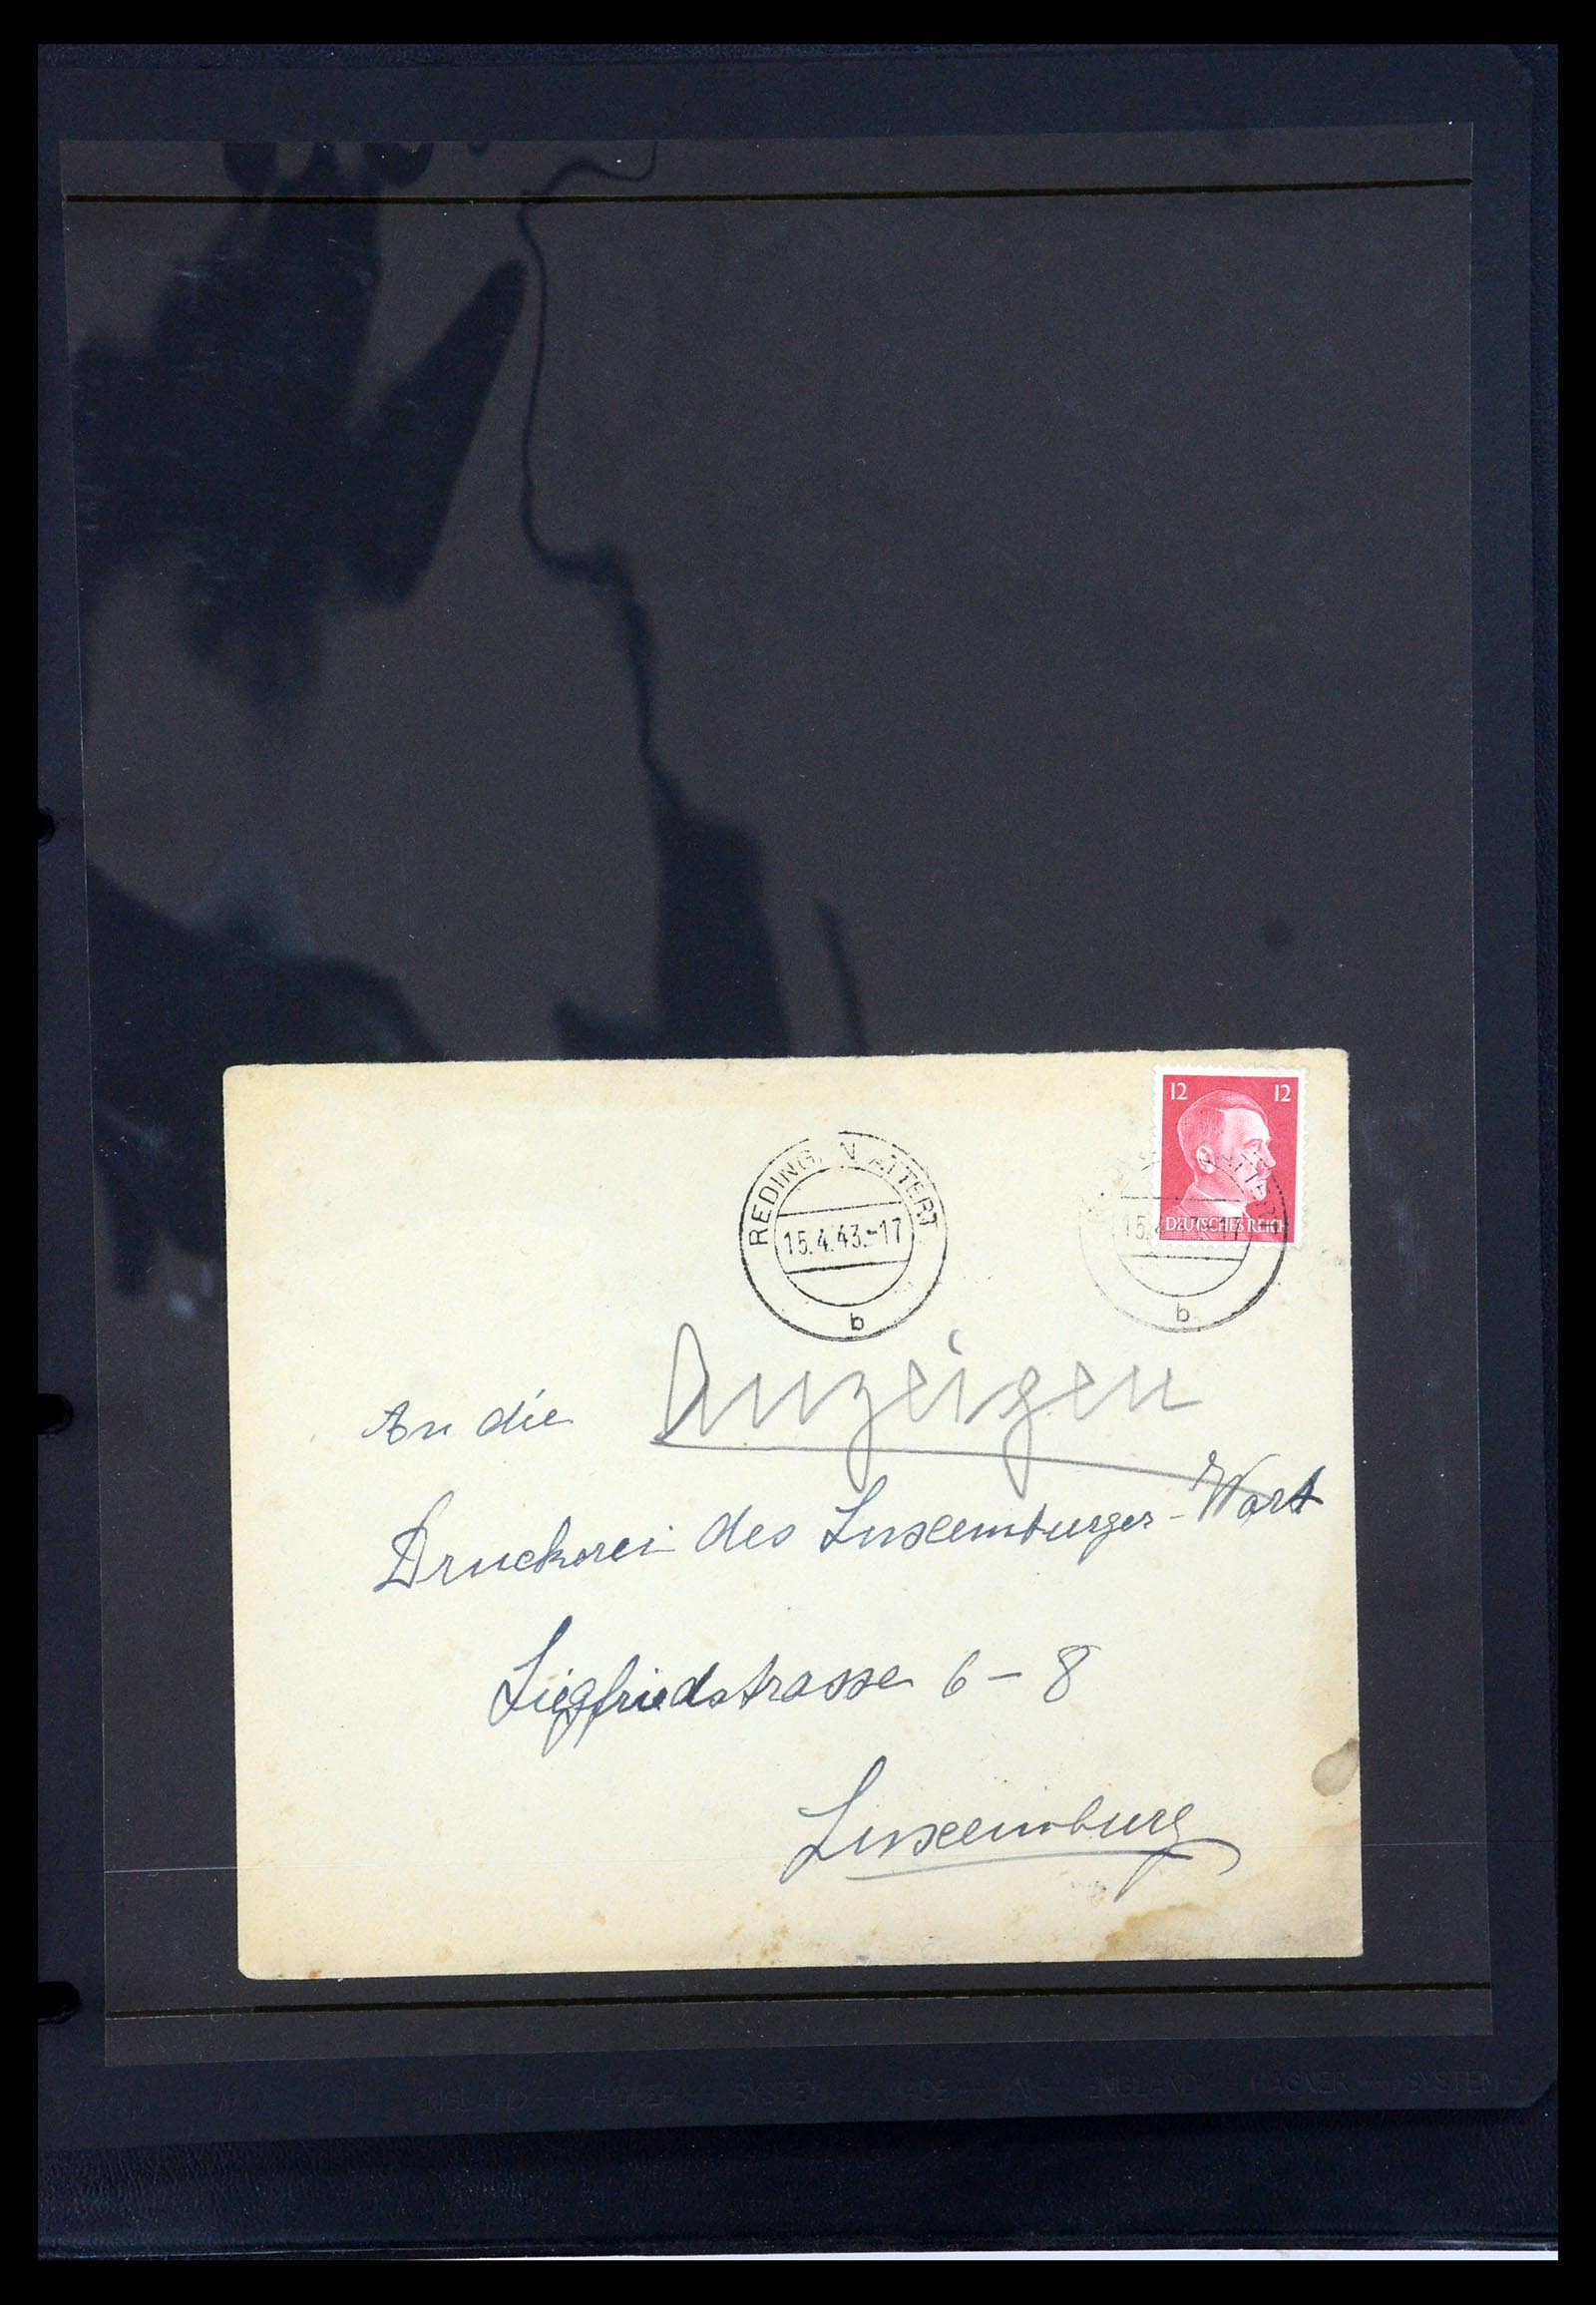 12 12
DEUTSCHES REICH
REDING. V ATTERT
15.4.43.-17
b
15. -17
b
Anzeigen
An die
Druckerei des Luxemburger-Wort
Siegfriedstrasse 6 - 8
Luxemburg
ENGLAND HAGNER SYSTEM MADE IN ENGLAND HAGNER SYSTEM